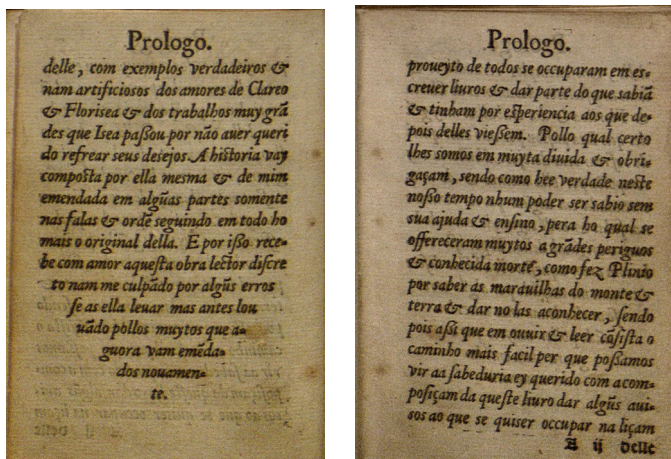 Prologo.
delle, com exemplos verdadeiros &
nam artificiosos dos amores de Clareo
& Florisea & dos trabalhos muy grã
des que Isea paßou por não auer queri
do refrear seus desejos. A historia vay
composta por ella mesma & de mim
emendada em algũas partes somente
nas falas & ordẽ seguindo em todo ho
mais o original della. E por ißo rece-
be com amor aquesta obra lector discre
to nam me culpãdo por algũs erros
se as ella leuar mas antes lou
uãdo pollos muytos que a-
guora vam emẽda-
dos nouamen-
te.
Prologo.
proueyto de todos se occuparam em es-
creuer liuros & dar parte do que sabiã
& tinham por esperiencia aos que de-
pois delles vießem. Pollo qual certo
lhes somos em muyta diuida & obri-
gaçam, sendo como hee verdade neste
noßo tempo nhum poder ser sabio sem
sua ajuda & ensino, pera ho qual se
offereceram muytos a grãdes periguos
& conhecida morte, como fez Plinio
por saber as marauilhas do monte &
terra & dar no las aconhecer, sendo
pois aßi que em ouuir & leer cõsista o
caminho mais facil per que poßamos
vir aa sabeduria ey querido com acom-
posiçam da queste liuro dar algũs aui-
sos ao que se quiser occupar na liçam
A ij delle